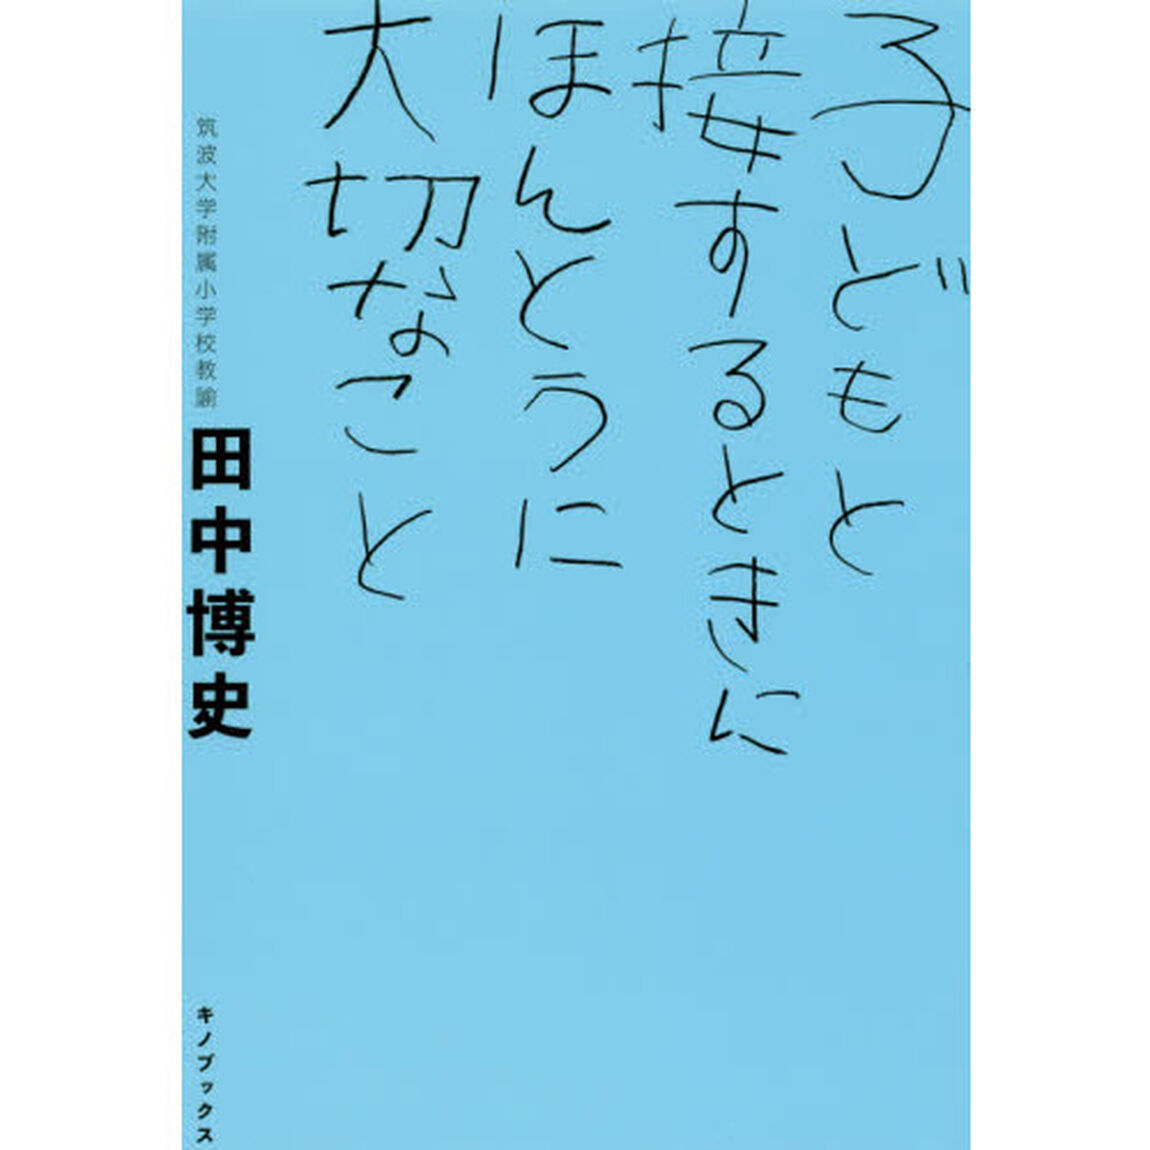 子どもと
接するときに
ほんとうに
大切なこと
筑波大学附属小学校教諭
田中博史
キノブックス